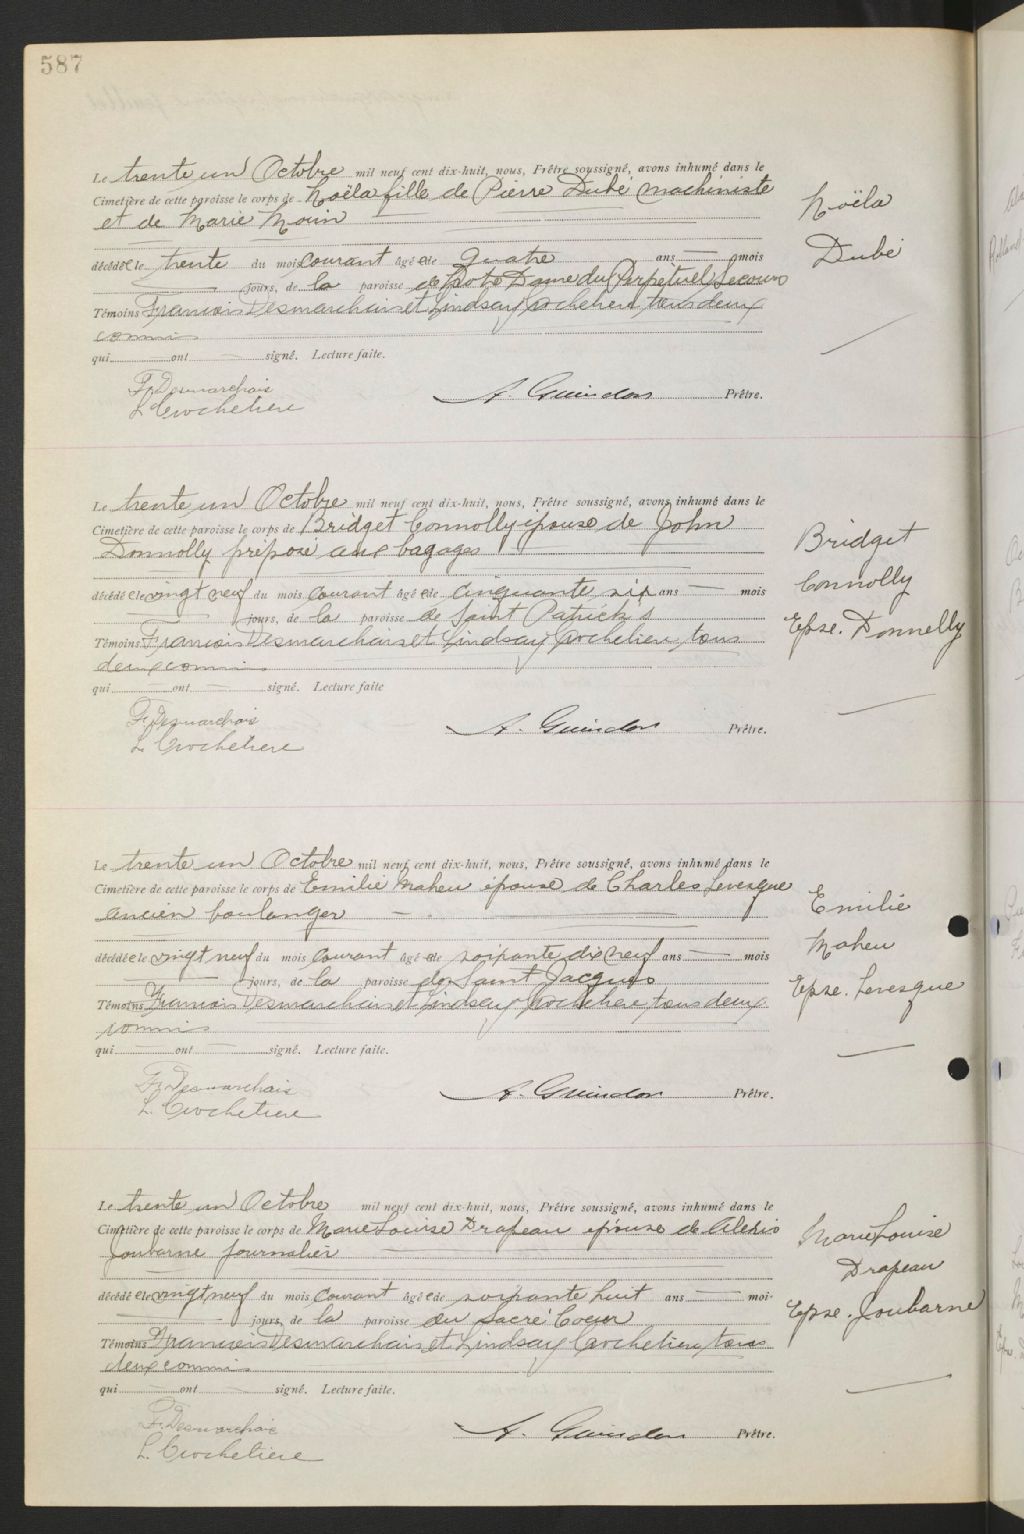 587
Le trente un Octobre mil neuf cent dix-huit, nous, Prêtre soussigné, avons inhumé dans le
Cimetière de cette paroisse le corps de Noëla fille de Pierre Dubé machiniste
et de Marie Morin
décédée le trente du mois courant âgée de quatre ans mois
jours, de la paroisse de Notre Dame du Perpetuel Secours
Témoins Francois Desmarchais et Lindsay Crochetiere tous deux
commis
qui ont signé. Lecture faite.
Fr. Desmarchais
L. Crochetiere
A. Guindon Prêtre.
Noëla
Dubé
Le trente un Octobre mil neuf cent dix-huit, nous, Prêtre soussigné, avons inhumé dans le
Cimetière de cette paroisse le corps de Bridget Connolly épouse de John
Donnolly préposé aux bagages
décédée le vingt neuf du mois courant âgée de cinquante six ans mois
jours, de la paroisse de Saint Patrick's
Témoins Francois Desmarchais et Lindsay Crochetiere, tous
deux commis
qui ont signé. Lecture faite
Fr. Desmarchais
L. Crochetiere
A. Guindon Prêtre.
Bridget
Connolly
Epse. Donnelly
Le trente un Octobre mil neuf cent dix-huit, nous, Prêtre soussigné, avons inhumé dans le
Cimetière de cette paroisse le corps de Emilie Maheu épouse de Charles Levesque
ancien boulanger
décédée le vingt neuf du mois courant âgée de soixante dix neuf ans mois
jours, de la paroisse de Saint Jacques
Témoins Francois Desmarchais et Lindsay Crochetiere, tous deux
commis
qui ont signé. Lecture faite.
Fr. Desmarchais
L. Crochetiere
A. Guindon Prêtre.
Emilie
Maheu
Epse. Levesque
Le trente un Octobre mil neuf cent dix-huit, nous, Prêtre soussigné, avons inhumé dans le
Cimetière de cette paroisse le corps de Marie Louise Drapeau épouse de Alexis
Joubarne journalier
décédée le vingt neuf du mois courant âgée de soixante huit ans moi-
jours, de la paroisse du Sacré Coeur
Témoins Francois Desmarchais et Lindsay Crochetiere, tous
deux commis
qui ont signé. Lecture faite.
F. Desmarchais
L. Crochetiere
A. Guindon Prêtre.
Marie Louise
Drapeau
Epse. Joubarne